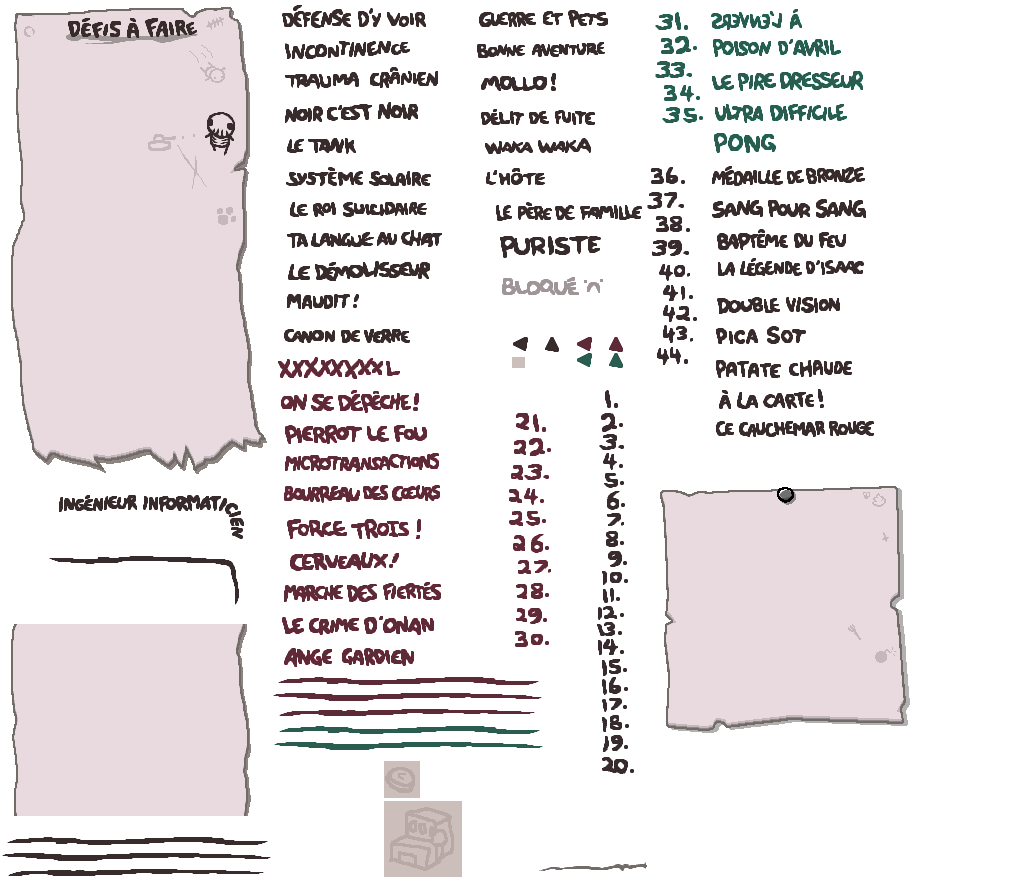 DÉFIS À FAIRE
INGÉNIEUR INFORMATICIEN
DÉFENSE D'Y VOIR
INCONTINENCE
TRAUMA CRÂNIEN
NOIR C'EST NOIR
LE TANK
SYSTÈME SOLAIRE
LE ROI SUICIDAIRE
TA LANGUE AU CHAT
LE DÉMOLISSEUR
MAUDIT !
CANON DE VERRE
XXXXXXXXL
ON SE DÉPÊCHE !
PIERROT LE FOU
MICROTRANSACTIONS
BOURREAU DES CŒURS
FORCE TROIS !
CERVEAUX !
MARCHE DES FIERTÉS
LE CRIME D'ONAN
ANGE GARDIEN
GUERRE ET PETS
BONNE AVENTURE
MOLLO !
DÉLIT DE FUITE
WAKA WAKA
L'HÔTE
LE PÈRE DE FAMILLE
PURISTE
BLOQUÉ 'n'
21.
22.
23.
24.
25.
26.
27.
28.
29.
30.
1.
2.
3.
4.
5.
6.
7.
8.
9.
10.
11.
12.
13.
14.
15.
16.
17.
18.
19.
20.
31.
32.
33.
34.
35.
36.
37.
38.
39.
40.
41.
42.
43.
44.
À L'ENVERS
POISON D'AVRIL
LE PIRE DRESSEUR
ULTRA DIFFICILE
PONG
MÉDAILLE DE BRONZE
SANG POUR SANG
BAPTÊME DU FEU
LA LÉGENDE D'ISAAC
DOUBLE VISION
PICA SOT
PATATE CHAUDE
À LA CARTE !
CE CAUCHEMAR ROUGE